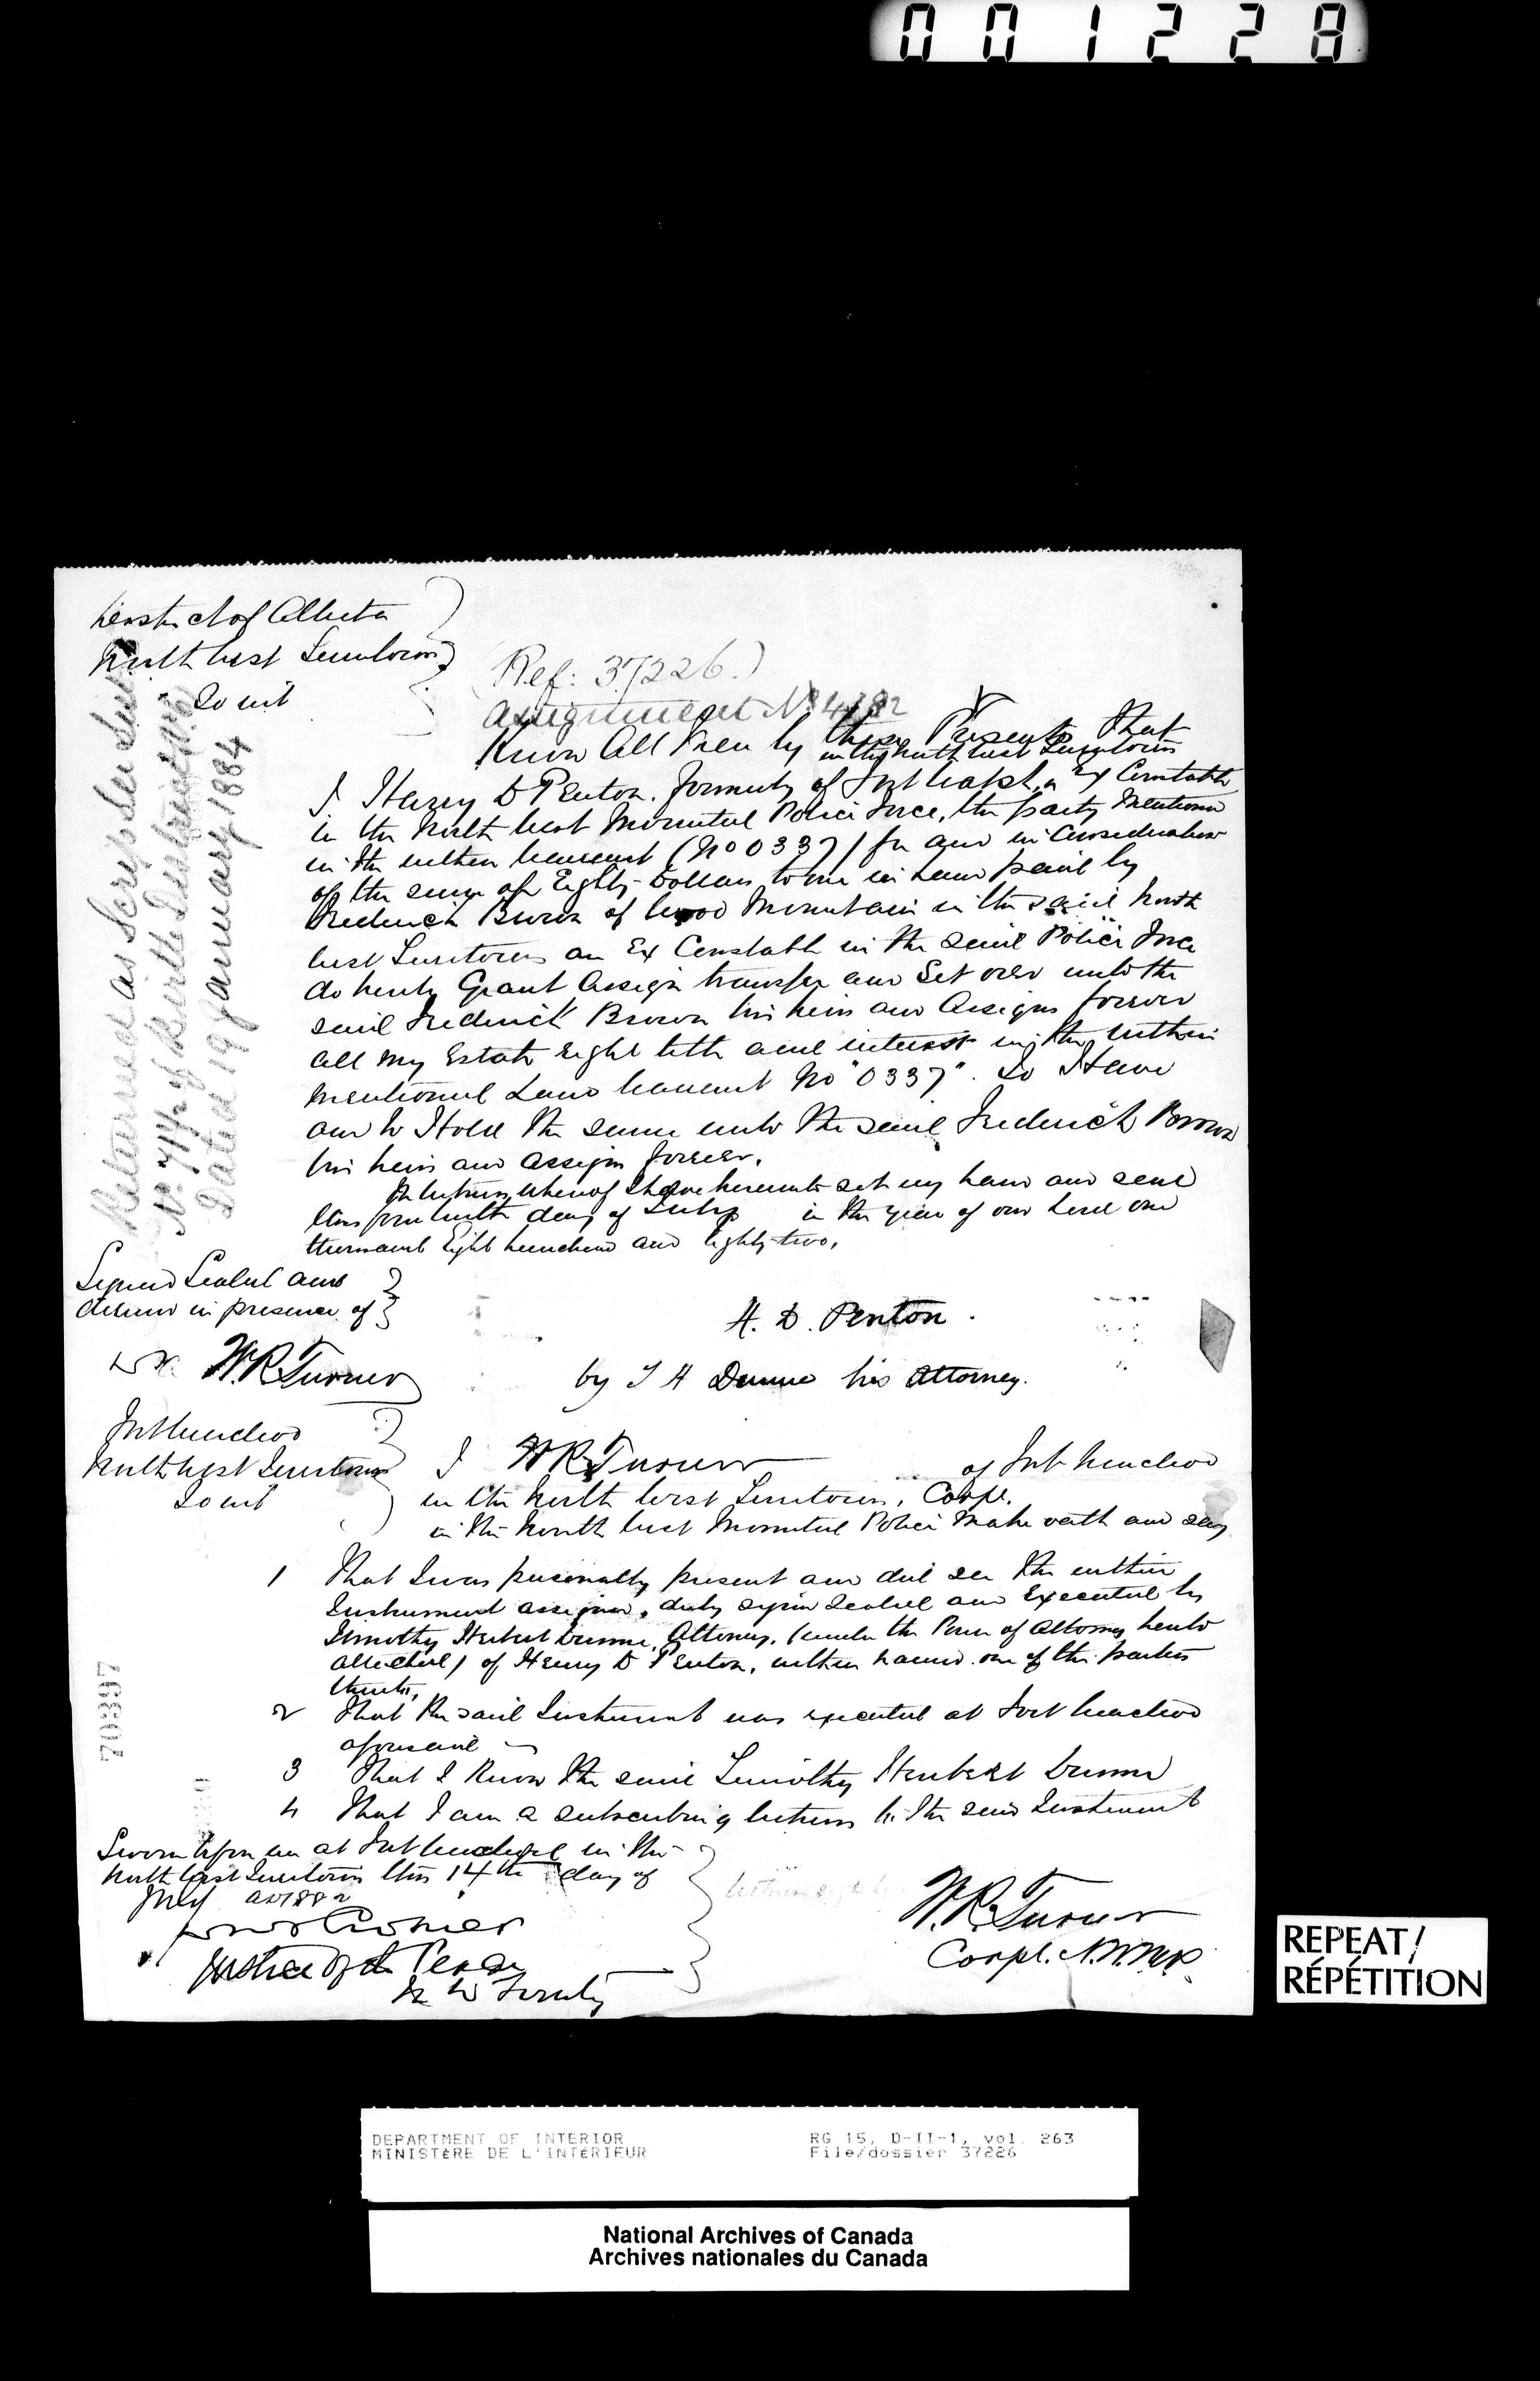 001228
District of Alberta
North West Territories
To wit
(Ref: 37226.)
Assignment No 4182
Know All Men by these Presents That
in the North West Territories
I Harry D Penton. formerly of Fort Walsh, an Ex Constable
in the North West Mounted Police Force, the party Mentioned
in the within Warrant (No 0337) for and in Consideration
of the sum of Eighty Dollars to me in hand paid by
Frederick Brown of Wood Mountain in the said North
West Territories an Ex Constable in the said Police Force
do hereby Grant Assign transfer and Set over unto the
said Frederick Brown his heirs and Assigns forever
all my Estate right title and interest in the within
mentioned Land Warrant No "0337". To Have
and to Hold the same unto the said Frederick Brown
his heirs and assigns forever.
In Witness Whereof I have hereunto set my hand and seal
this fourteenth day of July in the year of our Lord one
thousand Eight hundred and Eighty-two.
Signed Sealed and
delivered in presence of
W.R. Turner
H. D. Penton.
by T H Dunne his Attorney.
Fort Macleod
North West Territories
To wit
I W R Turner of Fort Macleod
in the North West Territories, Corpl.
in the North West Mounted Police Make oath and say
1 That I was personally present and did see the within
Instrument assigned, duly signed Sealed and Executed by
Timothy Herbert Dunne, Attorney, (under the Power of Attorney hereto
attached) of Henry D Penton, within named one of the parties
thereto,
2 That the said Instrument was executed at Fort Macleod
aforesaid
3 That I know the said Timothy Herbert Dunne
4 That I am a subscribing witness to the said Instrument
Sworn before me at Fort Macleod in the
North West Territories this 14th day of
July AD 1882
Justice of the Peace
N W Territory
W.R. Turner
Corpl. N.W.M.P.
Returned as Scrip See
No 714 of
Dated 19 January 1884
70397
REPEAT/
RÉPÉTITION
DEPARTMENT OF INTERIOR
MINISTÈRE DE L'INTÉRIEUR
RG 15, D-II-1, vol. 263
File/dossier 37226
National Archives of Canada
Archives nationales du Canada